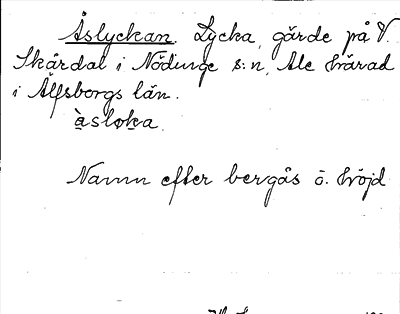 Åslyckan. Lycka, gärde på V.
Skårdal i Nödinge s:n, Ale härad
i Älfsborgs län.
àsloka.
Namn efter bergås o. höjd